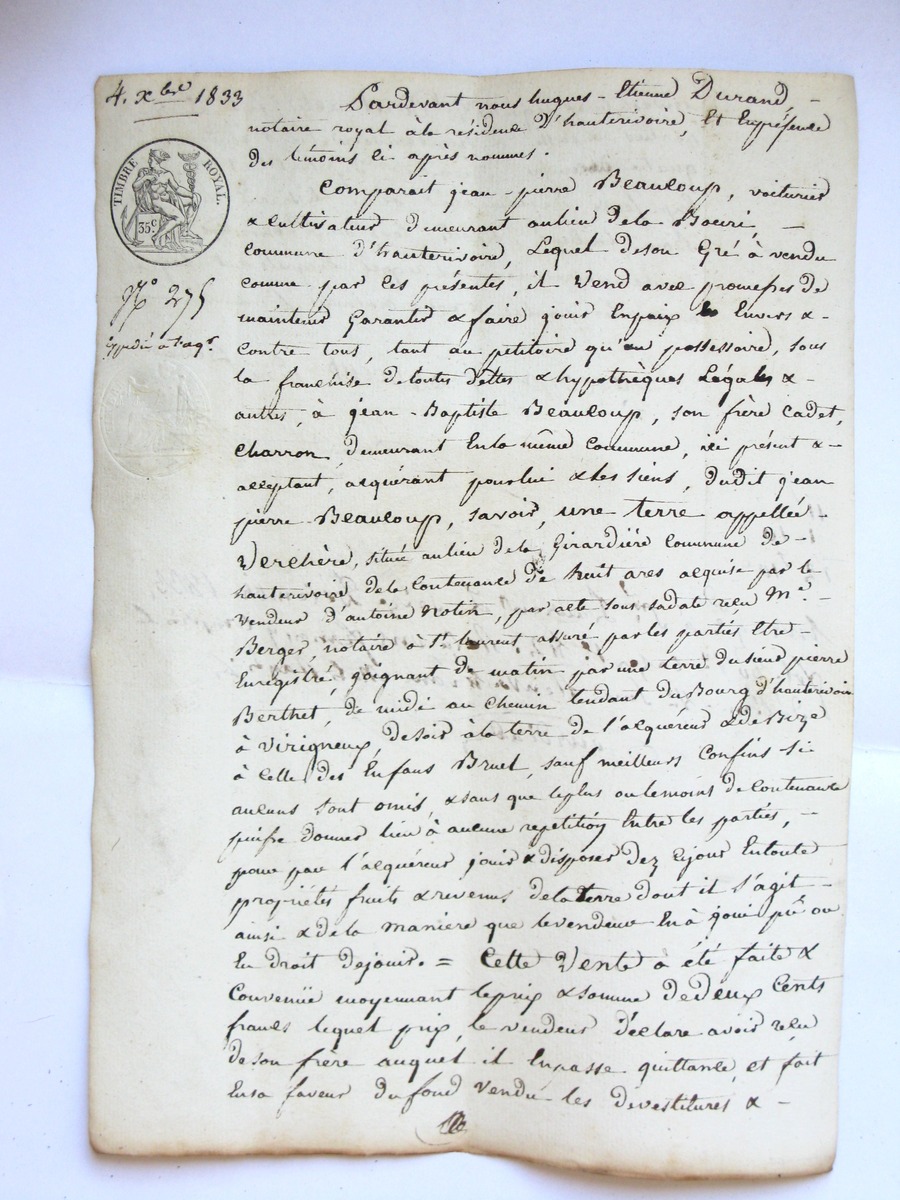 4. xbre 1833
TIMBRE ROYAL.
35c
No 275
Expédié à l'aqr
Pardevant nous hugues-Etienne Durand, -
notaire royal à la résidence D'hauterivoire, Et Enprésence
des témoins ci après nommés.
Comparait jean-pierre Beauloup, voiturier
& cultivateur demeurant aulieu dela Boeuri, -
commune d'hauterivoire, Lequel deson Gré à vendu
comme par ces présentes, il Vend avec promesses de
maintenir Garantir & faire jouir Enpaix Envers & -
contre tous, tant au petitoire qu'au possessoire, sous
la franchise detoutes dettes & hypothèques Légales & -
autres, à jean-Baptiste Beauloup, son frère cadet,
charron, demeurant Enla même Commune, ici présent & -
acceptant, acquérant pour lui & les siens, dudit jean
pierre Beauloup, savoir, une terre appellée -
Verchère, située aulieu dela Girardière Commune de -
hauterivoire dela Contenance de huit ares acquise par le
vendeur d'antoine Notin, par acte sous sadate reçu Me. -
Berger, notaire à St laurent assuré par les parties Etre -
Enregistré, joignant de matin par une terre du sieur pierre
Berthet, de midi au Chemin tendant du Bourg d'hauterivoire
à Virigneux, desoir à la terre de l'acquéreur & de Bize
à Celle des Enfans Bruel, sauf meilleurs Confins si
aucuns sont omis, & sans que leplus ou lemoins de Contenance
puisse donner lieu à aucune repetition Entre les parties, -
pour par l'acquéreur jouir & disposer dez cejour Entoute
propriétés fruits & revenus dela terre dont il s'agit -
ainsi & dela maniere que levendeur En à joui pû ou
Eu droit dejouir. = Cette Vente a été faite &
Convenüe moyennant leprix & somme de deux Cents
francs lequel prix, le vendeur déclare avoir reçu
deson frère auquel il Enpasse quittance, et fait
Ensa faveur du fond Vendu les devestitures & -